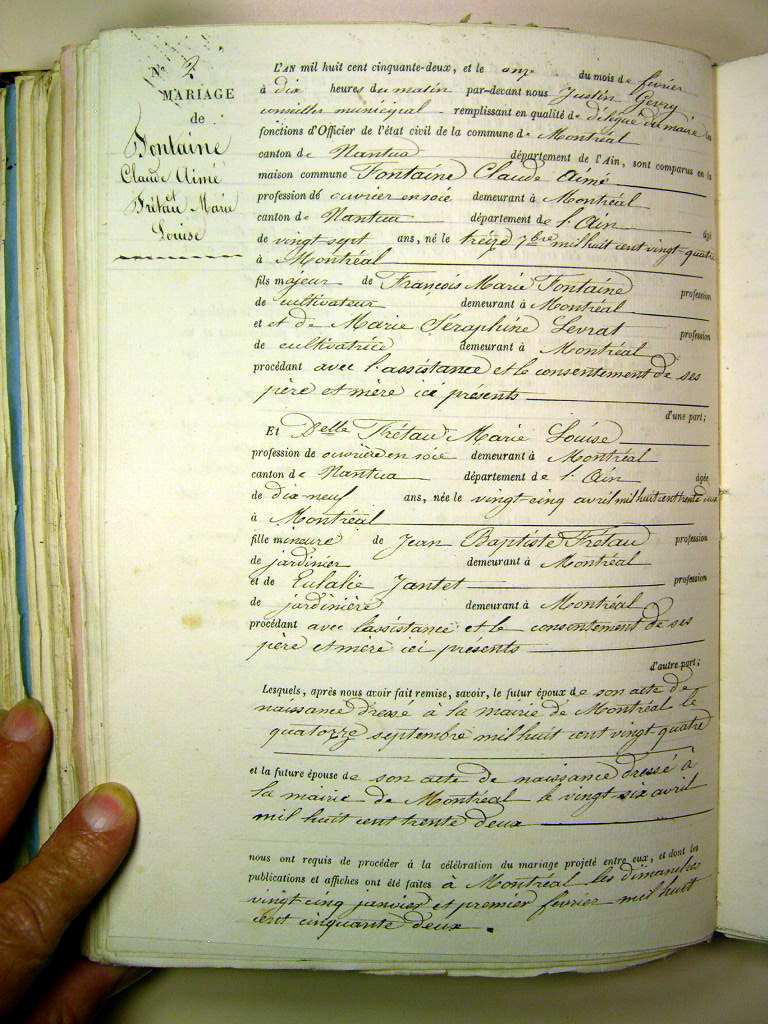 N° 3
MARIAGE
de
Fontaine
Claude Aimé
et
Trétau Marie
Louise
L'AN mil huit cent cinquante-deux, et le onze du mois de février
à dix heures du matin par-devant nous Justin Gevry
conseiller municipal remplissant en qualité de délégué du maire les
fonctions d'Officier de l'état civil de la commune de Montréal
canton de Nantua département de l'Ain, sont comparus en la
maison commune Fontaine Claude Aimé
profession de ouvrier en soie demeurant à Montréal
canton de Nantua département de l'Ain âgé
de vingt sept ans, né le treize 7bre mil huit cent vingt-quatre
à Montréal
fils majeur de François Marie Fontaine profession
de cultivateur demeurant à Montréal
et et de Marie Séraphine Levrat profession
de cultivatrice demeurant à Montréal
procédant avec l'assistance et le consentement de ses
père et mère ici présents
d'une part;
Et Delle Trétau Marie Louise
profession de ouvrière en soie demeurant à Montréal
canton de Nantua département de l'Ain âgée
de dix neuf ans, née le vingt-cinq avril mil huit cent trente deux
à Montréal
fille mineure de Jean Baptiste Trétau profession
de jardinier demeurant à Montréal
et de Eulalie Jantet profession
de jardinière demeurant à Montréal
procédant avec l'assistance et le consentement de ses
père et mère ici présents
d'autre part;
Lesquels, après nous avoir fait remise, savoir, le futur époux de son acte de
naissance dressé à la mairie de Montréal le
quatorze septembre mil huit cent vingt quatre
et la future épouse de son acte de naissance dressé à
la mairie de Montréal le vingt-six avril
mil huit cent trente deux
nous ont requis de procéder à la célébration du mariage projeté entre eux, et dont les
publications et affiches ont été faites à Montréal les dimanches
vingt cinq janvier et premier février mil huit
cent cinquante deux.